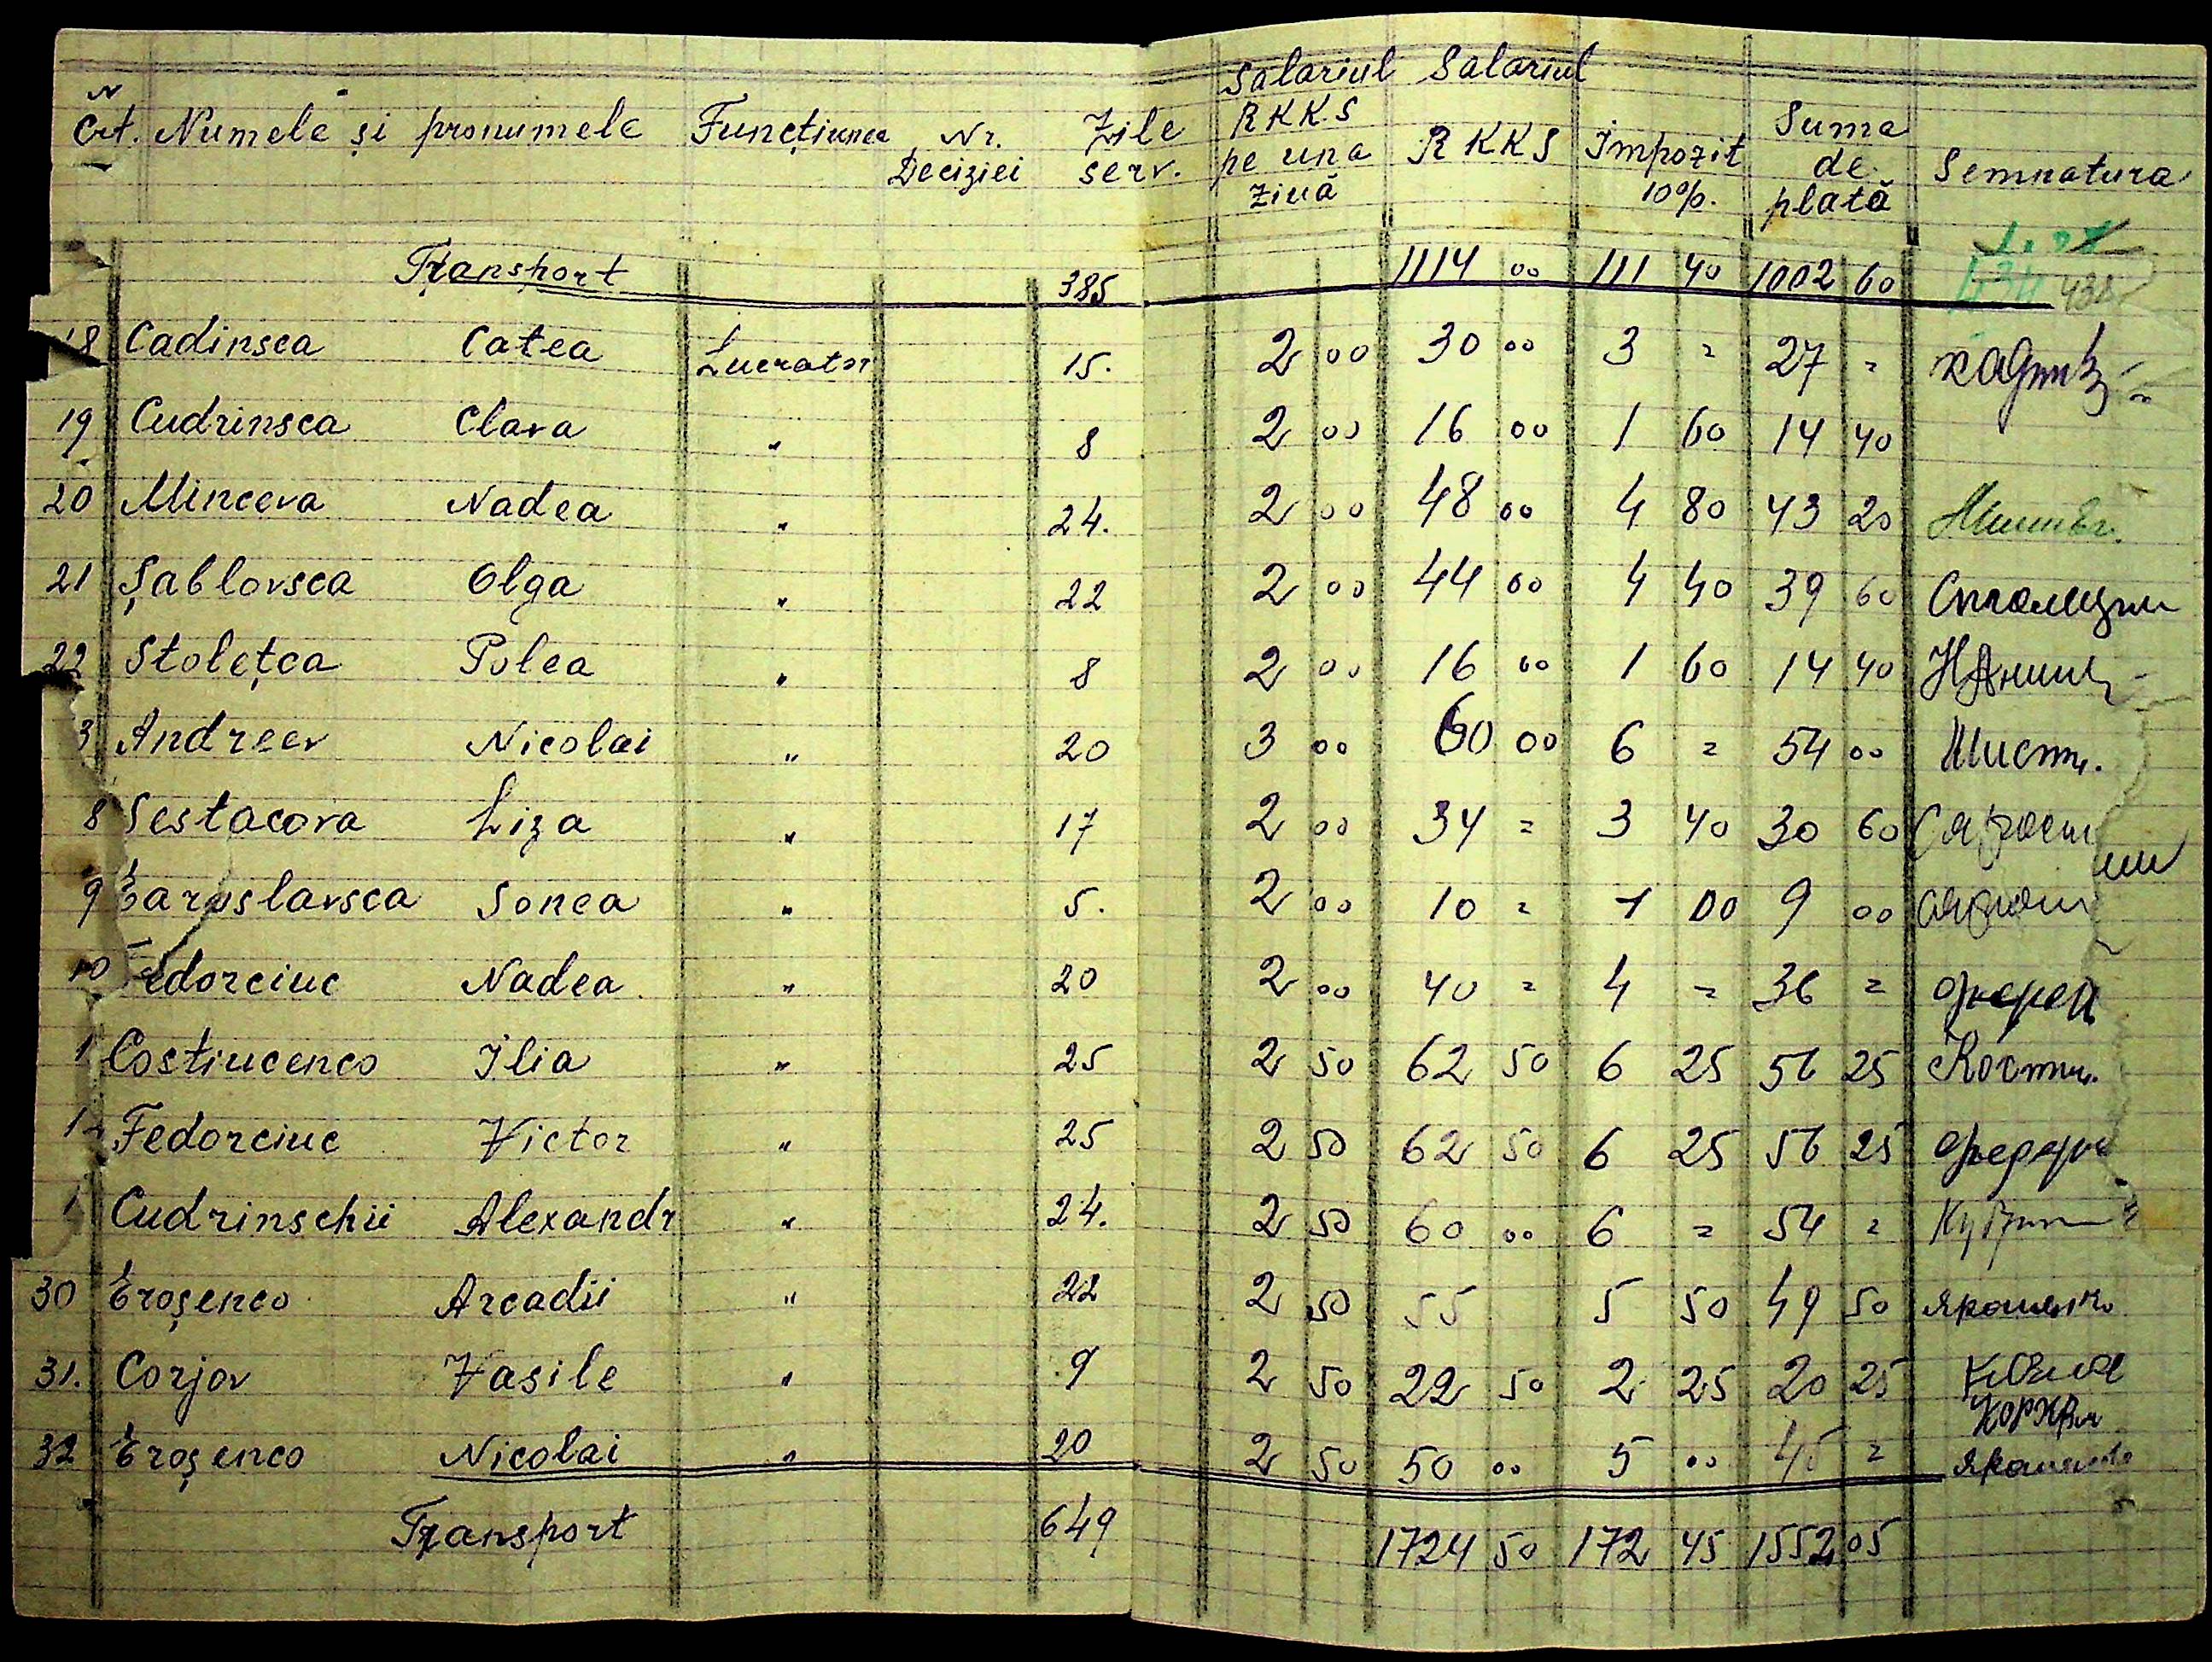 Salariul Salariul
N Crt. Numele și pronumele Funcțiunea Nr. Deciziei Zile serv. RKKS pe una ziuă RKKS Impozit 10%. Suma de plată Semnatura
Transport 385 1114 00 111 40 1002 60 438
18 Cadinsca Catea Lucrator 15. 2 00 30 00 3 = 27 =
19 Cudrinsca Clara " 8 2 00 16 00 1 60 14 40
20 Minceva Nadea " 24. 2 00 48 00 4 80 43 20
21 Șablovsca Olga " 22 2 00 44 00 4 40 39 60
22 Stolețca Polea " 8 2 00 16 00 1 60 14 40
3 Andreev Nicolai " 20 3 00 60 00 6 = 54 00
8 Sestacova Liza " 17 2 00 34 = 3 40 30 60
9 Earoslavsca Sonea " 5. 2 00 10 = 1 00 9 00
10 Fedorciuc Nadea " 20 2 00 40 = 4 = 36 =
1 Costiucenco Ilia " 25 2 50 62 50 6 25 56 25 Костю.
1 Fedorciuc Victor " 25 2 50 62 50 6 25 56 25
1 Cudrinschii Alexandr " 24. 2 50 60 00 6 = 54 =
30 Eroșenco Arcadii " 22 2 50 55 5 50 49 50 Ярошенко
31. Corjov Vasile " 9 2 50 22 50 2 25 20 25
32 Eroșenco Nicolai " 20 2 50 50 00 5 00 45 = Ярошенко
Transport 649 1724 50 172 45 1552 05